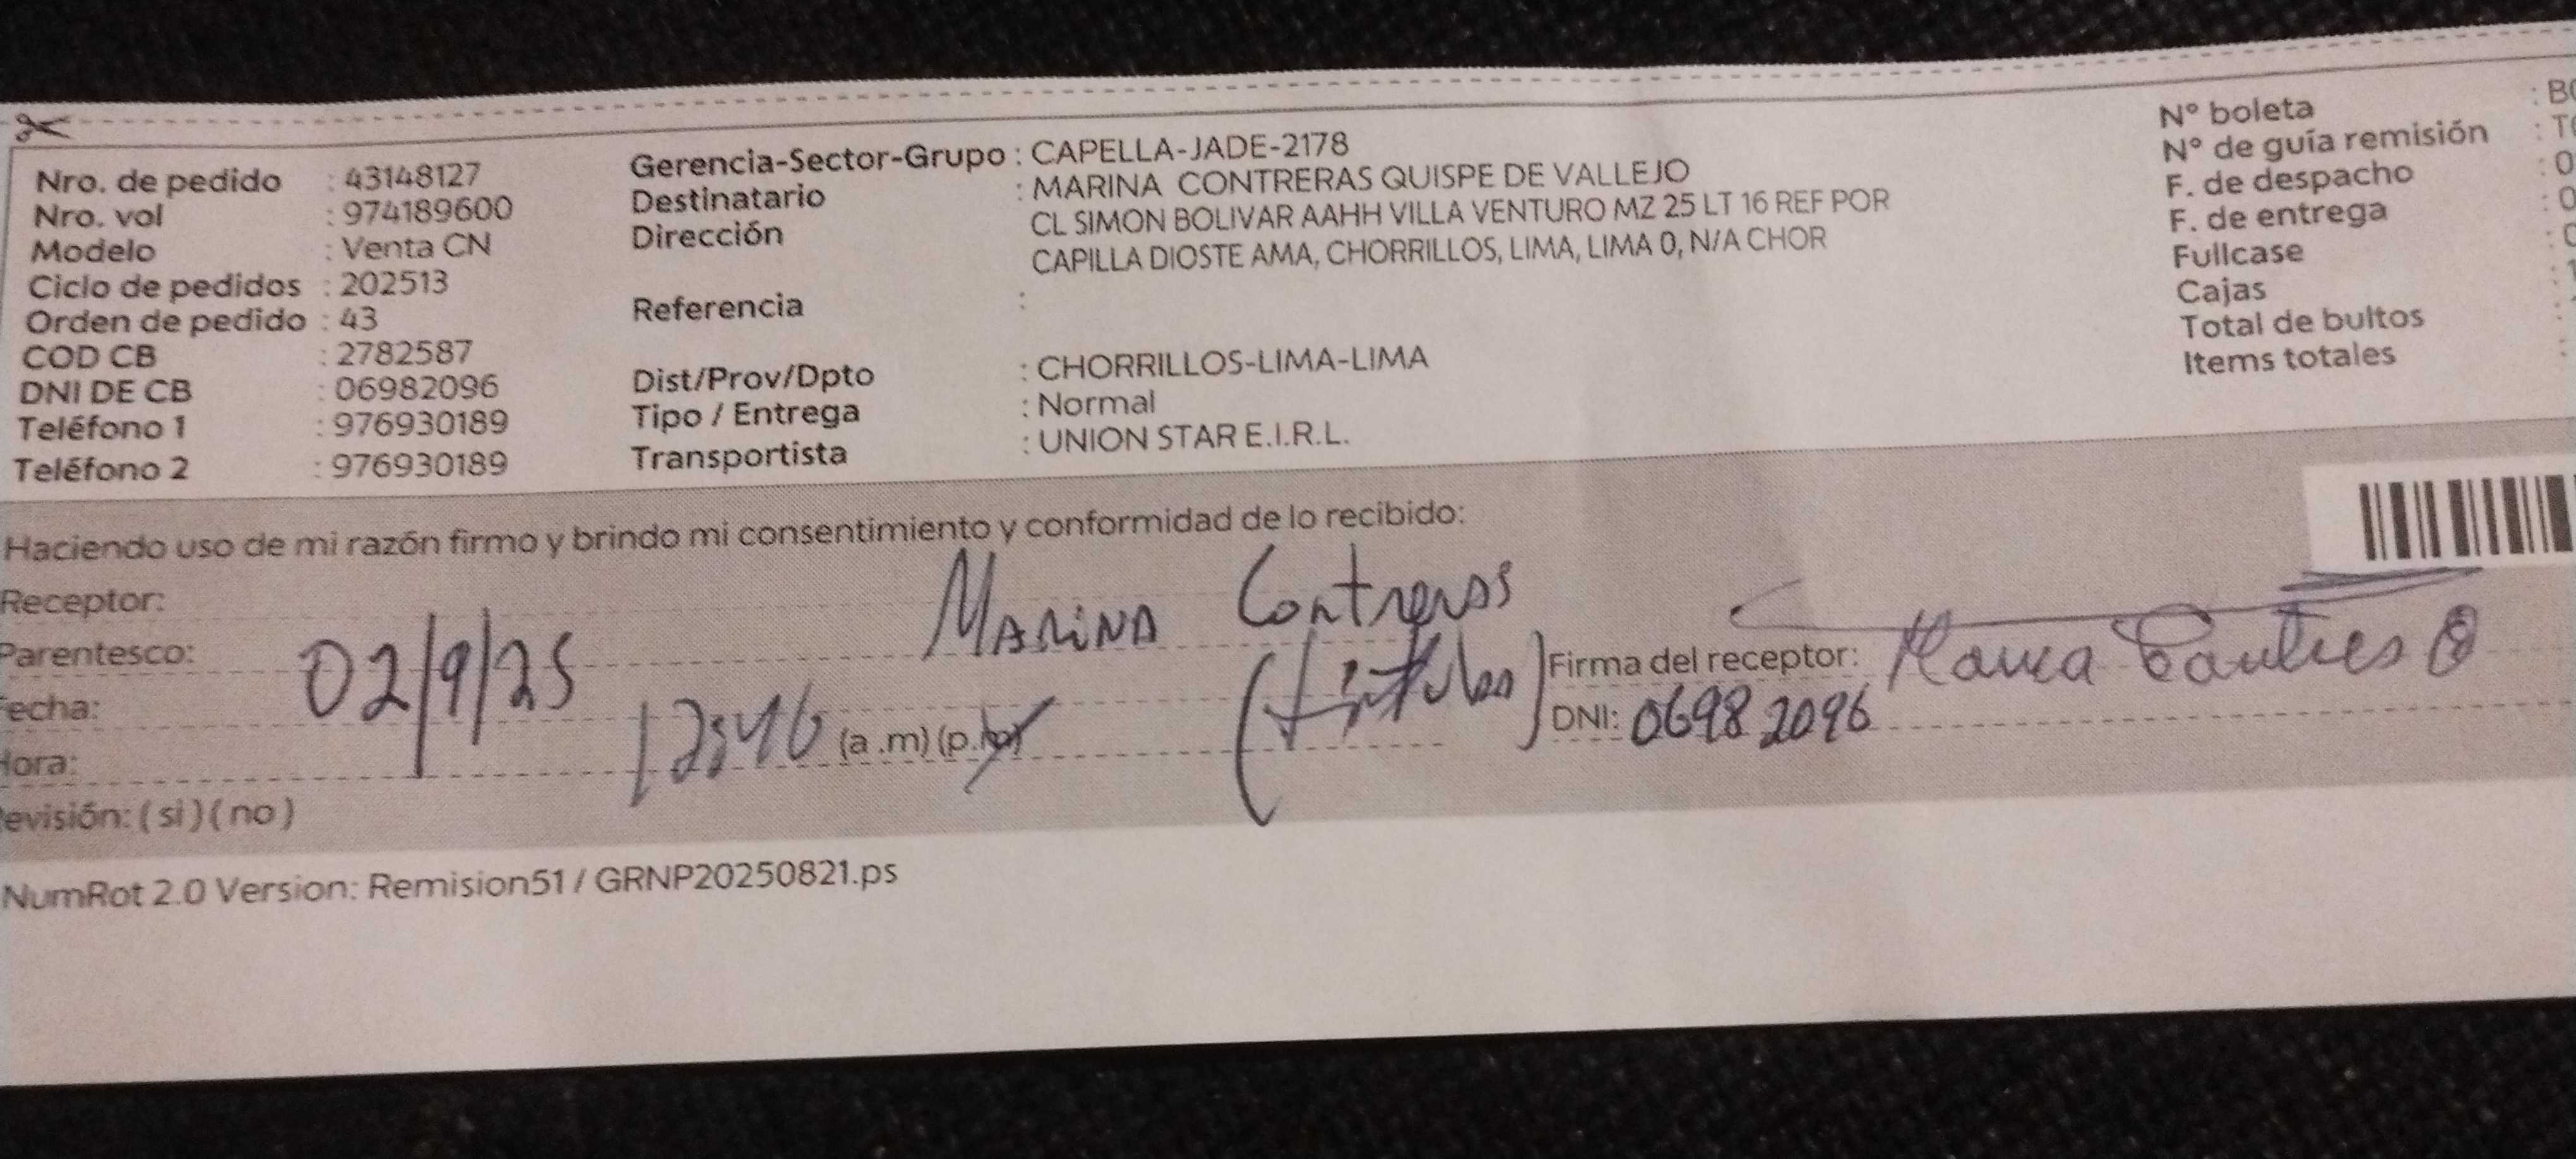 Nro. de pedido : 43148127
Nro. vol : 974189600
Modelo : Venta CN
Ciclo de pedidos : 202513
Orden de pedido : 43
COD CB : 2782587
DNI DE CB : 06982096
Teléfono 1 : 976930189
Teléfono 2 : 976930189
Gerencia-Sector-Grupo : CAPELLA-JADE-2178
Destinatario : MARINA CONTRERAS QUISPE DE VALLEJO
Dirección CL SIMON BOLIVAR AAHH VILLA VENTURO MZ 25 LT 16 REF POR
CAPILLA DIOSTE AMA, CHORRILLOS, LIMA, LIMA 0, N/A CHOR
Referencia :
Dist/Prov/Dpto : CHORRILLOS-LIMA-LIMA
Tipo / Entrega : Normal
Transportista : UNION STAR E.I.R.L.
N° boleta :
N° de guía remisión :
F. de despacho :
F. de entrega :
Fullcase :
Cajas :
Total de bultos :
Items totales :
Haciendo uso de mi razón firmo y brindo mi consentimiento y conformidad de lo recibido:
Receptor: MARINA Contreras
Parentesco: (titular)
Fecha: 02/9/25
Hora: 12:46 (a .m) (p.m)
Revisión: ( si ) ( no )
Firma del receptor:
DNI: 06982096
NumRot 2.0 Version: Remision51 / GRNP20250821.ps